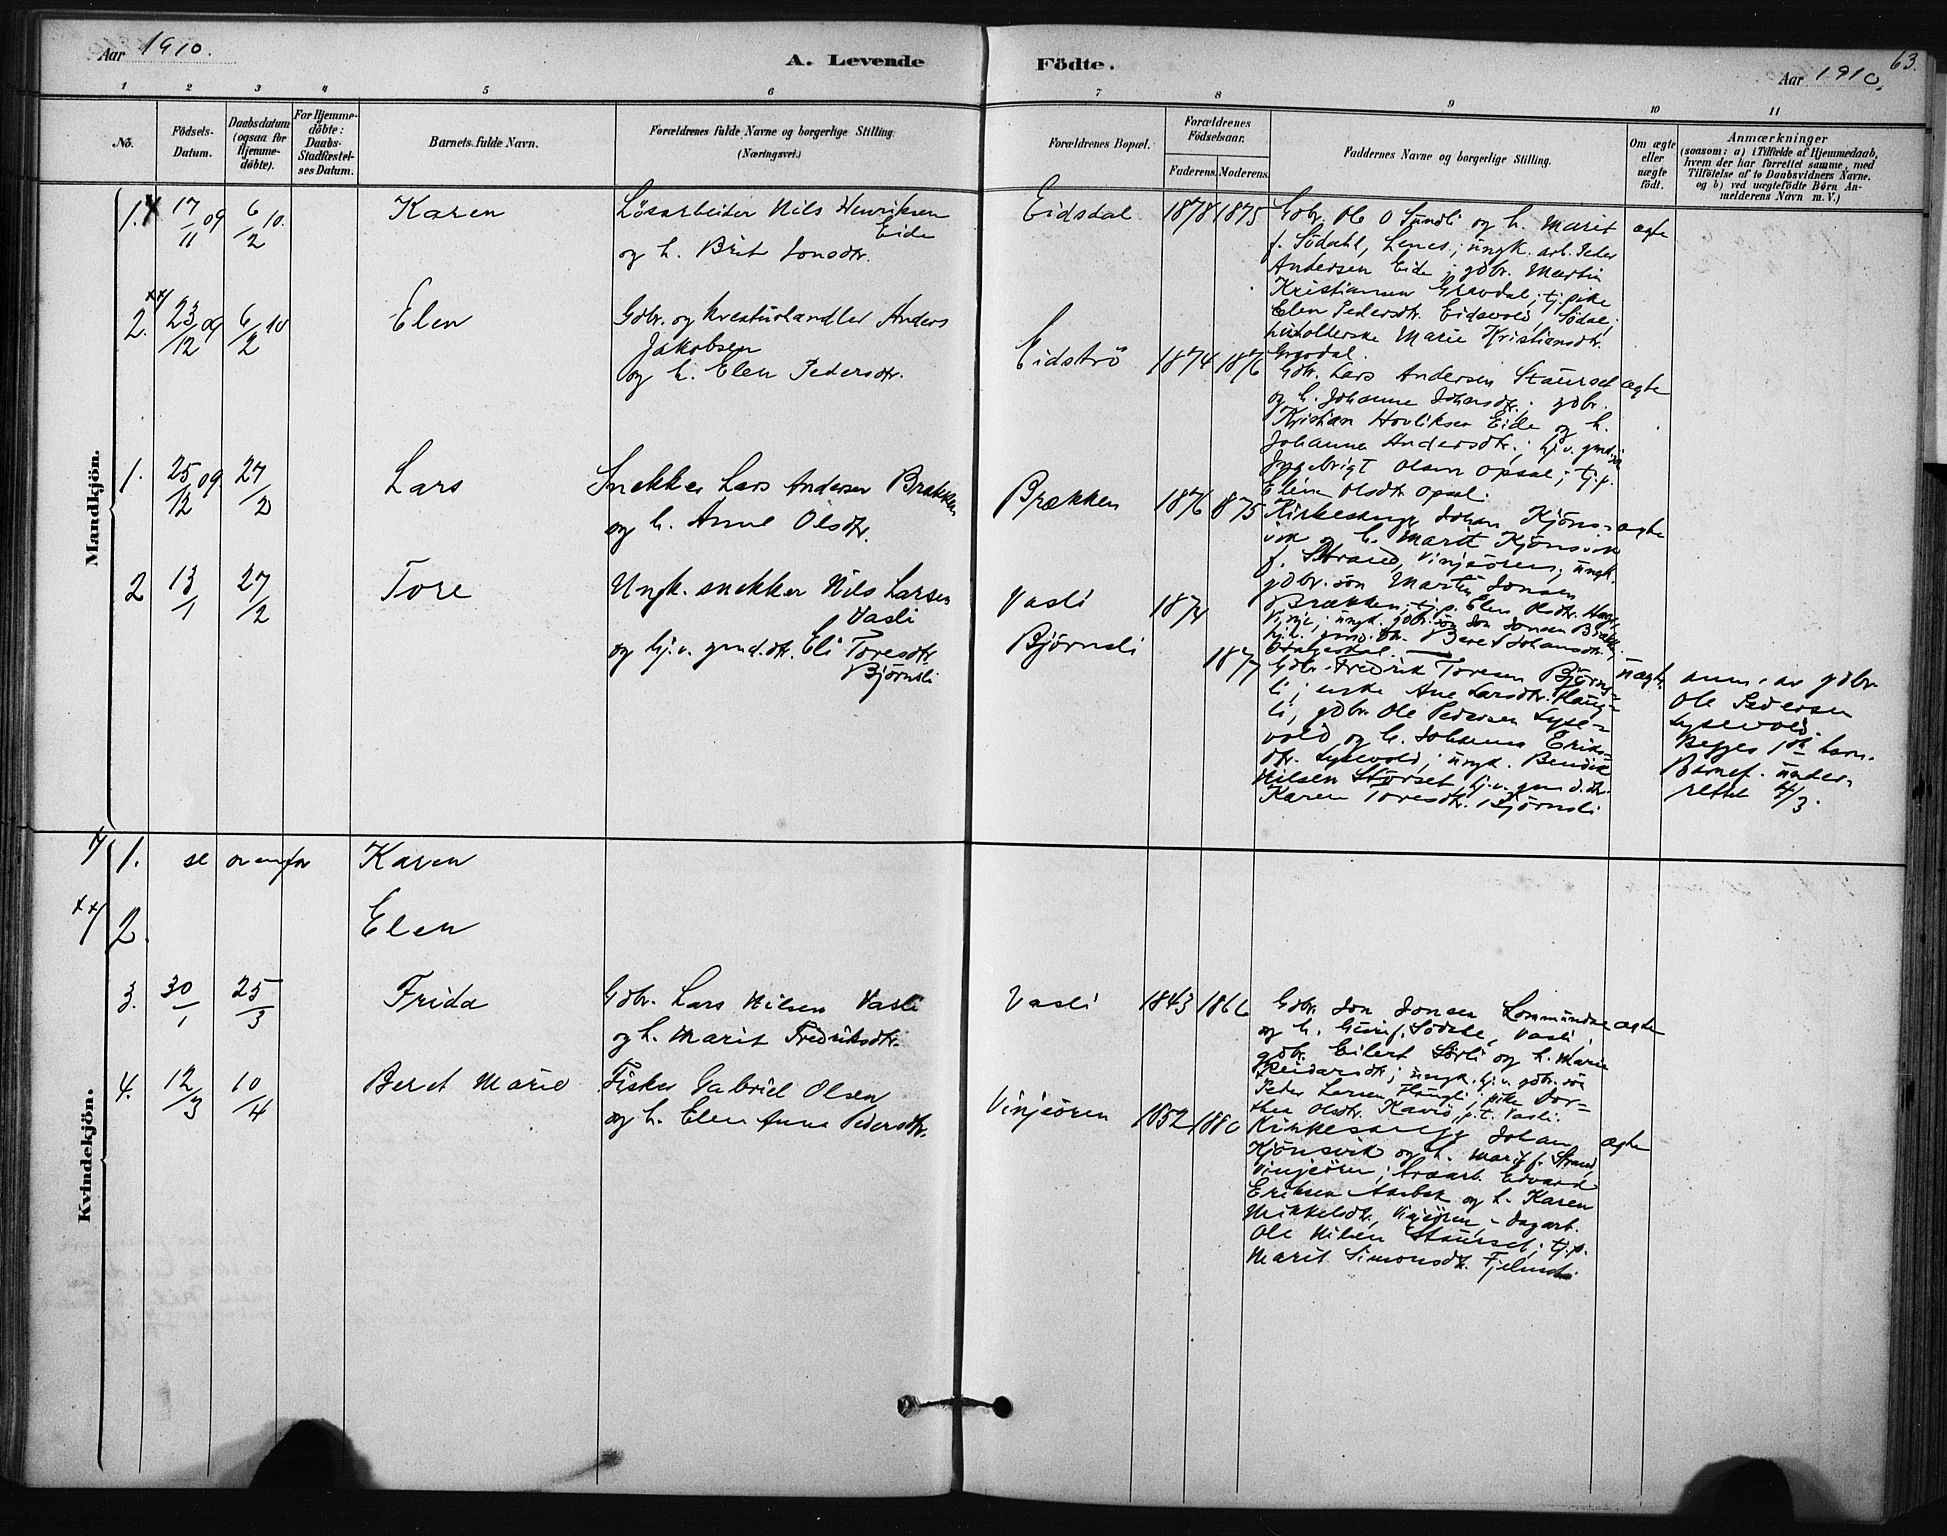 Aar 1910.
A. Levende Födte.
Aar 1910.
63.
1 2 3 4 5 6 7 8 9 10 11
No.
Födsels-Datum.
Daabsdatum (ogsaa for Hjemme-döbte).
For Hjemme-döbte: Daabs-Stadfæstel-ses Datum.
Barnets fulde Navn.
Forældrenes fulde Navne og borgerlige Stilling. (Næringsvei.)
Forældrenes Bopæl.
Forældrenes Födselsaar.
Faderens. Moderens.
Faddernes Navne og borgerlige Stilling.
Om ægte eller uægte födt.
Anmærkninger
(saasom: a) i Tilfælde af Hjemmedaab,
hvem der har forrettet samme, med
Tilföielse af to Daabsvidners Navne.
og b) ved uægtefödte Börn An-
melderens Navn m. V.)
Mandkjön.
1. 17/11 09 6/2 10. Karen
Lösarbeider Nils Henriksen
Eide
og h. Brit Jonsdtr.
Eidsdal 1878 1875
Gdbr. Ole O Sundli og h. Marit
f. Södahl, Lenes; ungk. arb. Peder
Andersen Eide; gdbr. Martin
Kristiansen Gravdal; tj.pike
Elen Pedersdtr. Eidsvold, Södal;
Marie Kristiansdtr.
Gravdal.
ægte
2. 23/12 09 6/2 10 Elen
Gdbr. og kreaturhandler Anders
Jakobsen
og h. Elen Pedersdtr.
Eidströ 1874 1876
Gdbr. Lars Andersen Staurset
og h. Johanne Johansdtr.; gdbr.
Kristian Eide og h.
Johanna Andersdtr.; hj.v. gmd.sön
Ingebrigt Olsen Opsal; tj.p.
Olsdtr. Opsal.
ægte
1. 25/12 09 27/2 Lars
Snekker Lars Andersen Brækken
og h. Anne Olsdtr.
Brækken 1876 1875
Kirkesanger Johan Kjöns-
vik og h. Marit Kjönsvik
f. Strand, Vinjeören; ungk.
gdbr.sön Martin Jonsen
Brækken; tj.p. Elen Olsdtr.
Vinje; ungk. gdbr.sön Jon Jonsen
Beret Johansdtr.
ægte
2 13/1 27/2 Tore
Ungk. snekker Nils Larsen
Vasli
og hj.v. gmd.dtr. Eli Toresdtr.
Björnsli
Vasli 1874
Björnsli
1877
Gdbr. Fredrik Toresen Björns-
li; enke Ane Larsdtr. Haug-
li, gdbr. Ole Pedersen Lyse-
vold og h. Johanna Eriks-
dtr. Lysevold; ungk. Bendik
Nilsen Störset, hj.v. gmd.dtr.
Karen Toresdtr. Björnsli
uægte
anm. av gdbr.
Ole Pedersen
Lysevold.
Begges 1ste barn.
Barnef. under-
rettet 4/3.
Kvindekjön.
1. se ovenfor Karen
2. Elen
3. 30/1 25/3 Frida
Gdbr. Lars Nilsen Vasli
og h. Marit Fredriksdtr.
Vasli 1843 1866
Gdbr. Jon Jonsen Lommundal
og h. Guri f. Södahl, Vasli;
gdbr. Eilert Sörli og h. Marie
Reidarsdtr.; ungk. hj.v. gdbr.sön
Peder Larsen Haugli; pike Dor-
thea Olsdtr. p.t. Vasli.
ægte
4. 12/3 10/4 Beret Marie
Fisker Gabriel Olsen
og h. Elen Anna Pedersdtr.
Vinjeören 1852 1880
Kirkesanger Johan
Kjönsvik og h. Marit f. Strand,
Vinjeören; Edvard
Eriksen og h. Karen
Mikkelsdtr., Vinjeören, dagarb.
Ole Nilsen Staurset; tj.p.
Marit Simonsdtr.
ægte